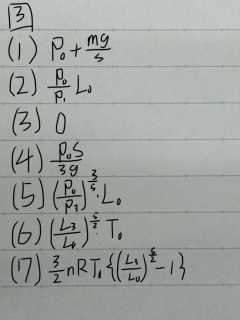 3
(1) P₀+mg/s
(2) P₀/P₁ L₀
(3) 0
(4) P₀S/3g
(5) (P₀/P₃)^(3/5)·L₀
(6) (L₃/L₀)^(5/2)·T₀
(17) 3/2 nRT₀{(L₃/L₀)^(5/2)-1}